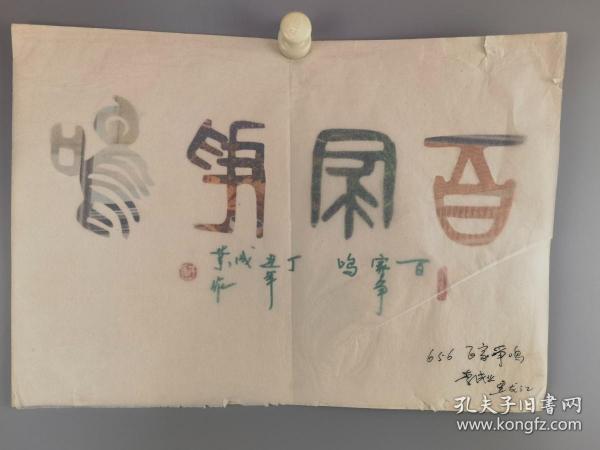 百家争鸣
百家争鸣
丁丑年
成業作
656 百家争鸣
成业 黑龙江
孔夫子旧书网
www.kongfz.com